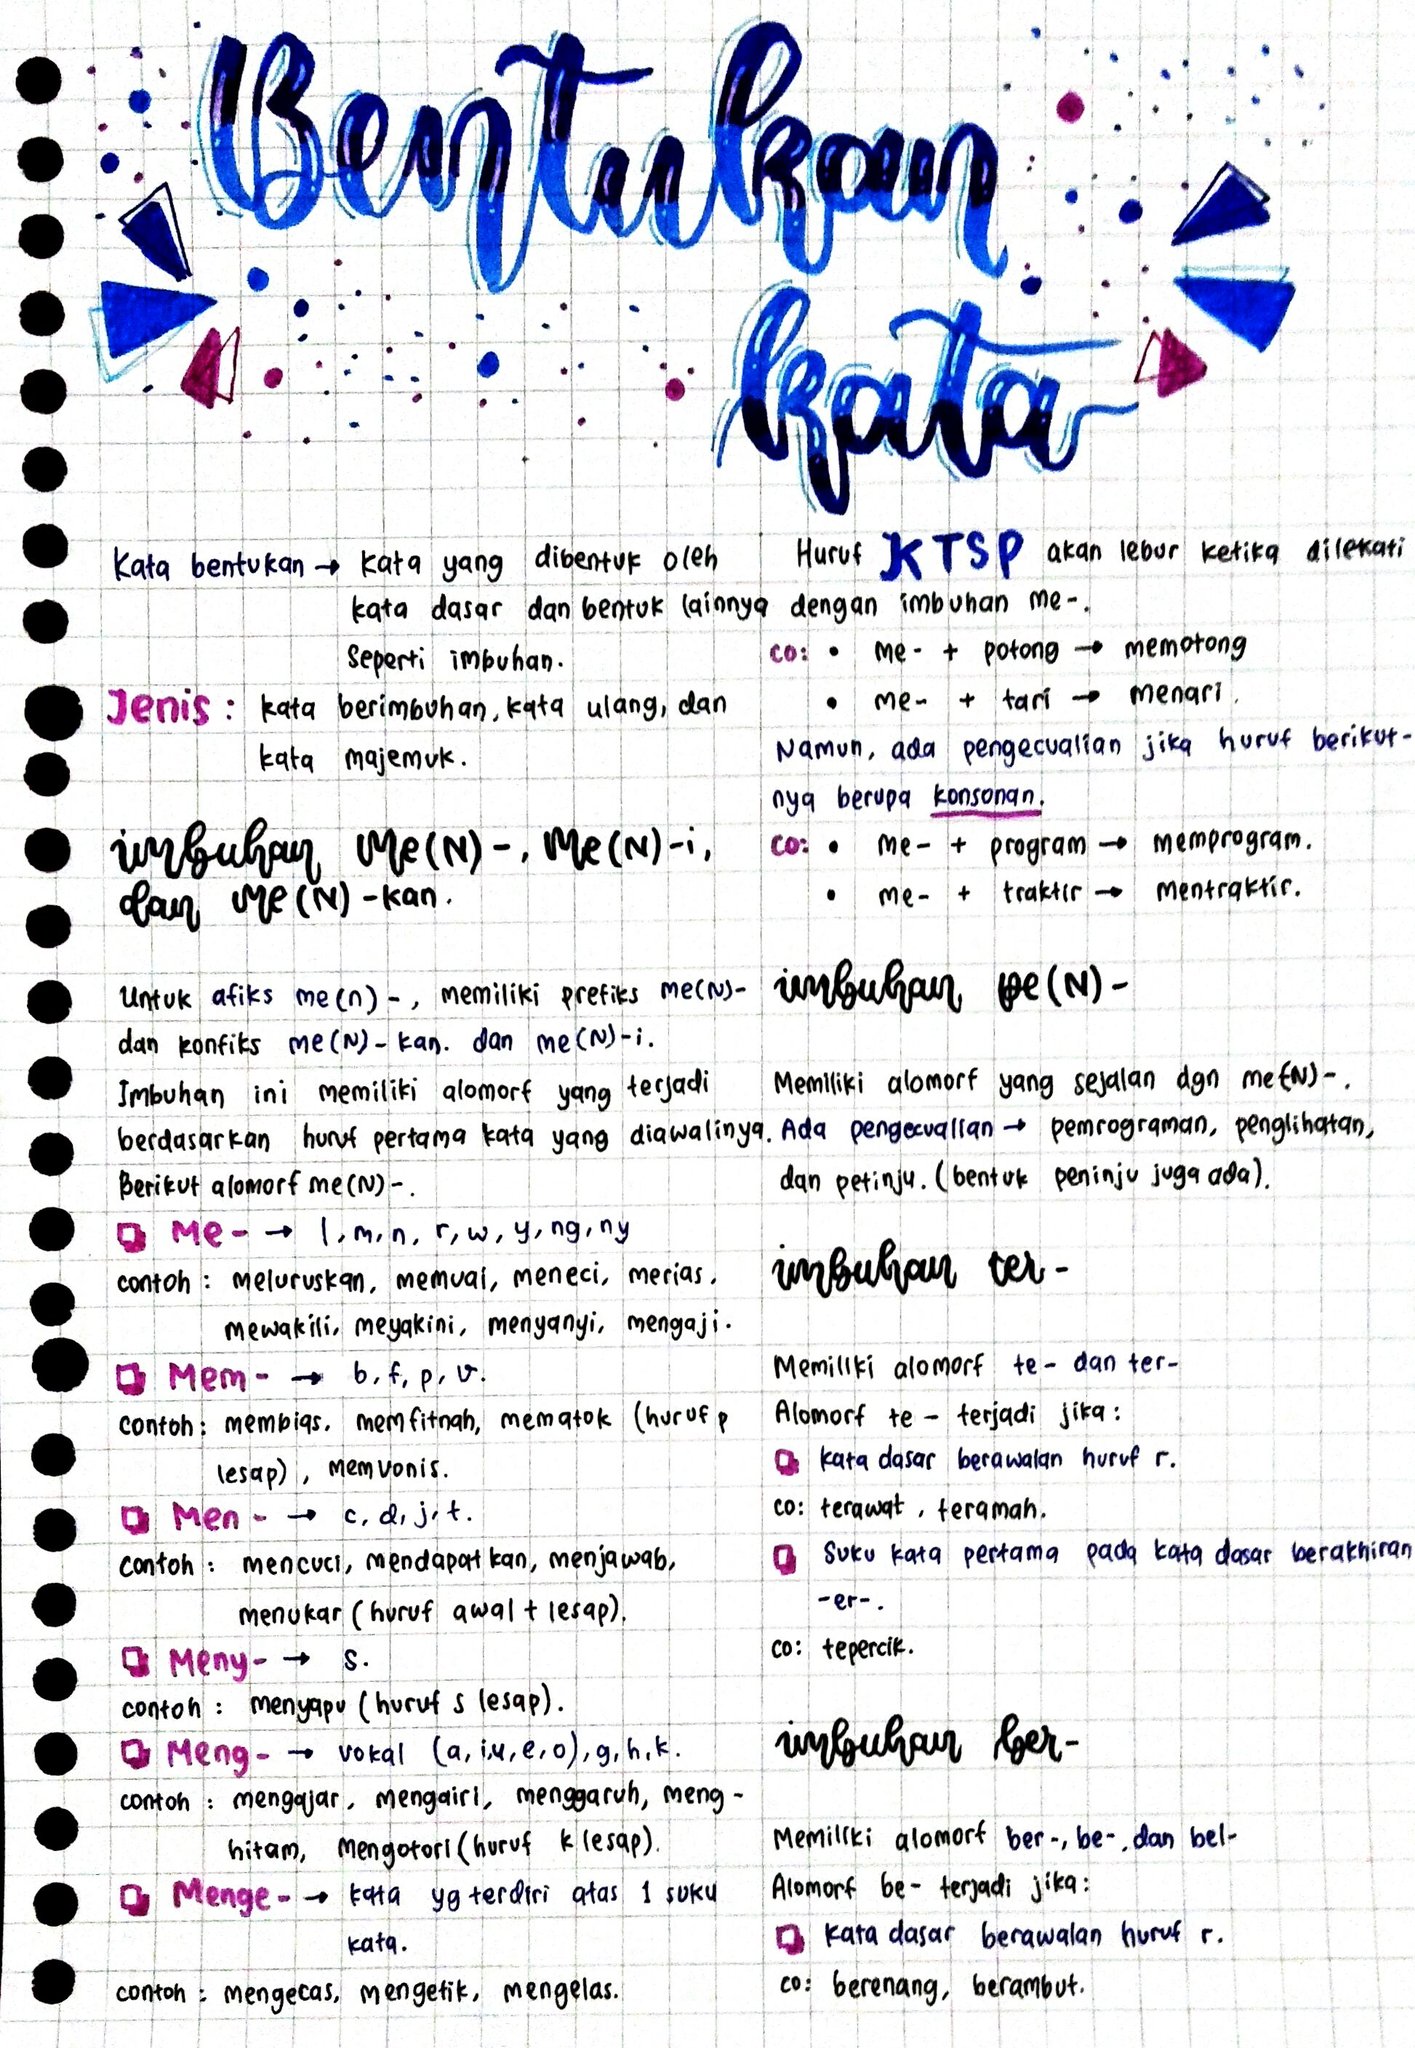 Bentukan
kata
Kata bentukan → kata yang dibentuk oleh
kata dasar dan bentuk lainnya
seperti imbuhan.
Jenis : kata berimbuhan, kata ulang, dan
kata majemuk.
imbuhan Me(N)-, Me(N)-i,
dan Me(N)-kan.
Untuk afiks me(n)-, memiliki prefiks me(N)-
dan konfiks me(N)-kan. dan me(N)-i.
Imbuhan ini memiliki alomorf yang terjadi
berdasarkan huruf pertama kata yang diawalinya.
Berikut alomorf me(N)-.
Me- → l, m, n, r, w, y, ng, ny
contoh : meluruskan, memuai, meneci, merias,
mewakili, meyakini, menyanyi, mengaji.
Mem- → b, f, p, v.
contoh : membias, memfitnah, mematok (huruf p
lesap), memvonis.
Men- → c, d, j, t.
contoh : mencuci, mendapatkan, menjawab,
menukar (huruf awal t lesap).
Meny- → s.
contoh : menyapu (huruf s lesap).
Meng- → vokal (a, i,u, e, o), g, h, k.
contoh : mengajar, mengairi, menggaruh, meng-
hitam, mengotori (huruf k lesap).
Menge- → kata yg terdiri atas 1 suku
kata.
contoh : mengecas, mengetik, mengelas.
Huruf KTSP akan lebur ketika dilekati
dengan imbuhan me-.
co: • me- + potong → memotong
• me- + tari → menari.
Namun, ada pengecualian jika huruf berikut-
nya berupa konsonan.
co: • me- + program → memprogram.
• me- + traktir → mentraktir.
imbuhan pe(N)-
Memiliki alomorf yang sejalan dgn me(N)-.
Ada pengecualian → pemrograman, penglihatan,
dan petinju. (bentuk peninju juga ada).
imbuhan ter-
Memiliki alomorf te- dan ter-
Alomorf te- terjadi jika :
kata dasar berawalan huruf r.
co: terawat, teramah.
Suku kata pertama pada kata dasar berakhiran
-er-.
co: tepercik.
imbuhan ber-
Memiliki alomorf ber-, be-, dan bel-
Alomorf be- terjadi jika :
kata dasar berawalan huruf r.
co: berenang, berambut.